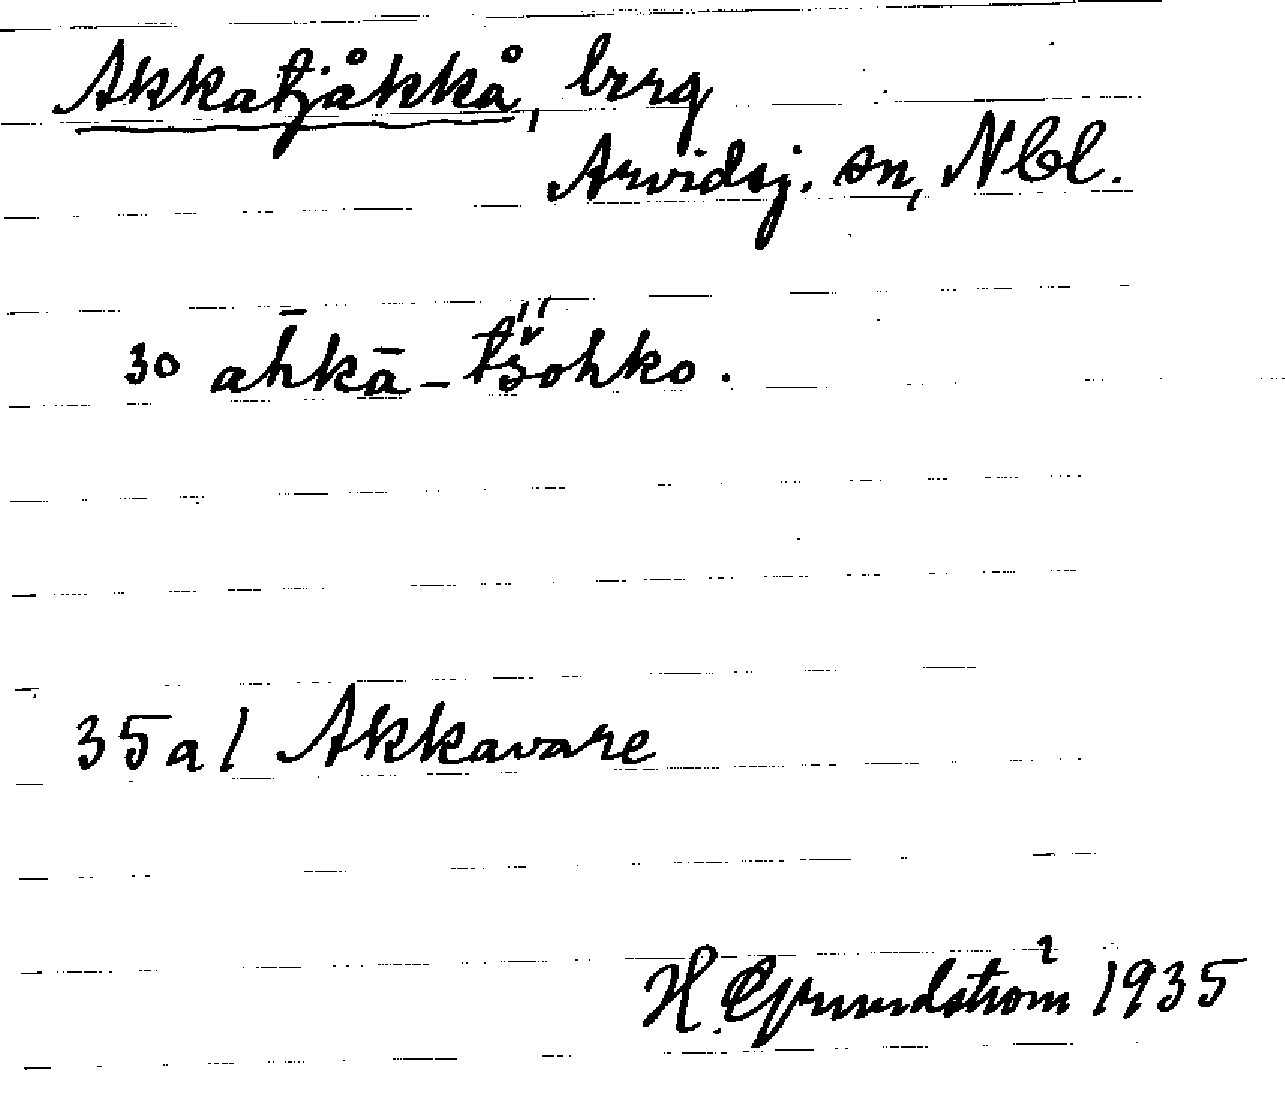 Akkatjåkkå, berg
Arvidsj. sn, Nbl.
30 āhkā-tš̌ohko.
35a/ Akkavare
H. Grundström 1935